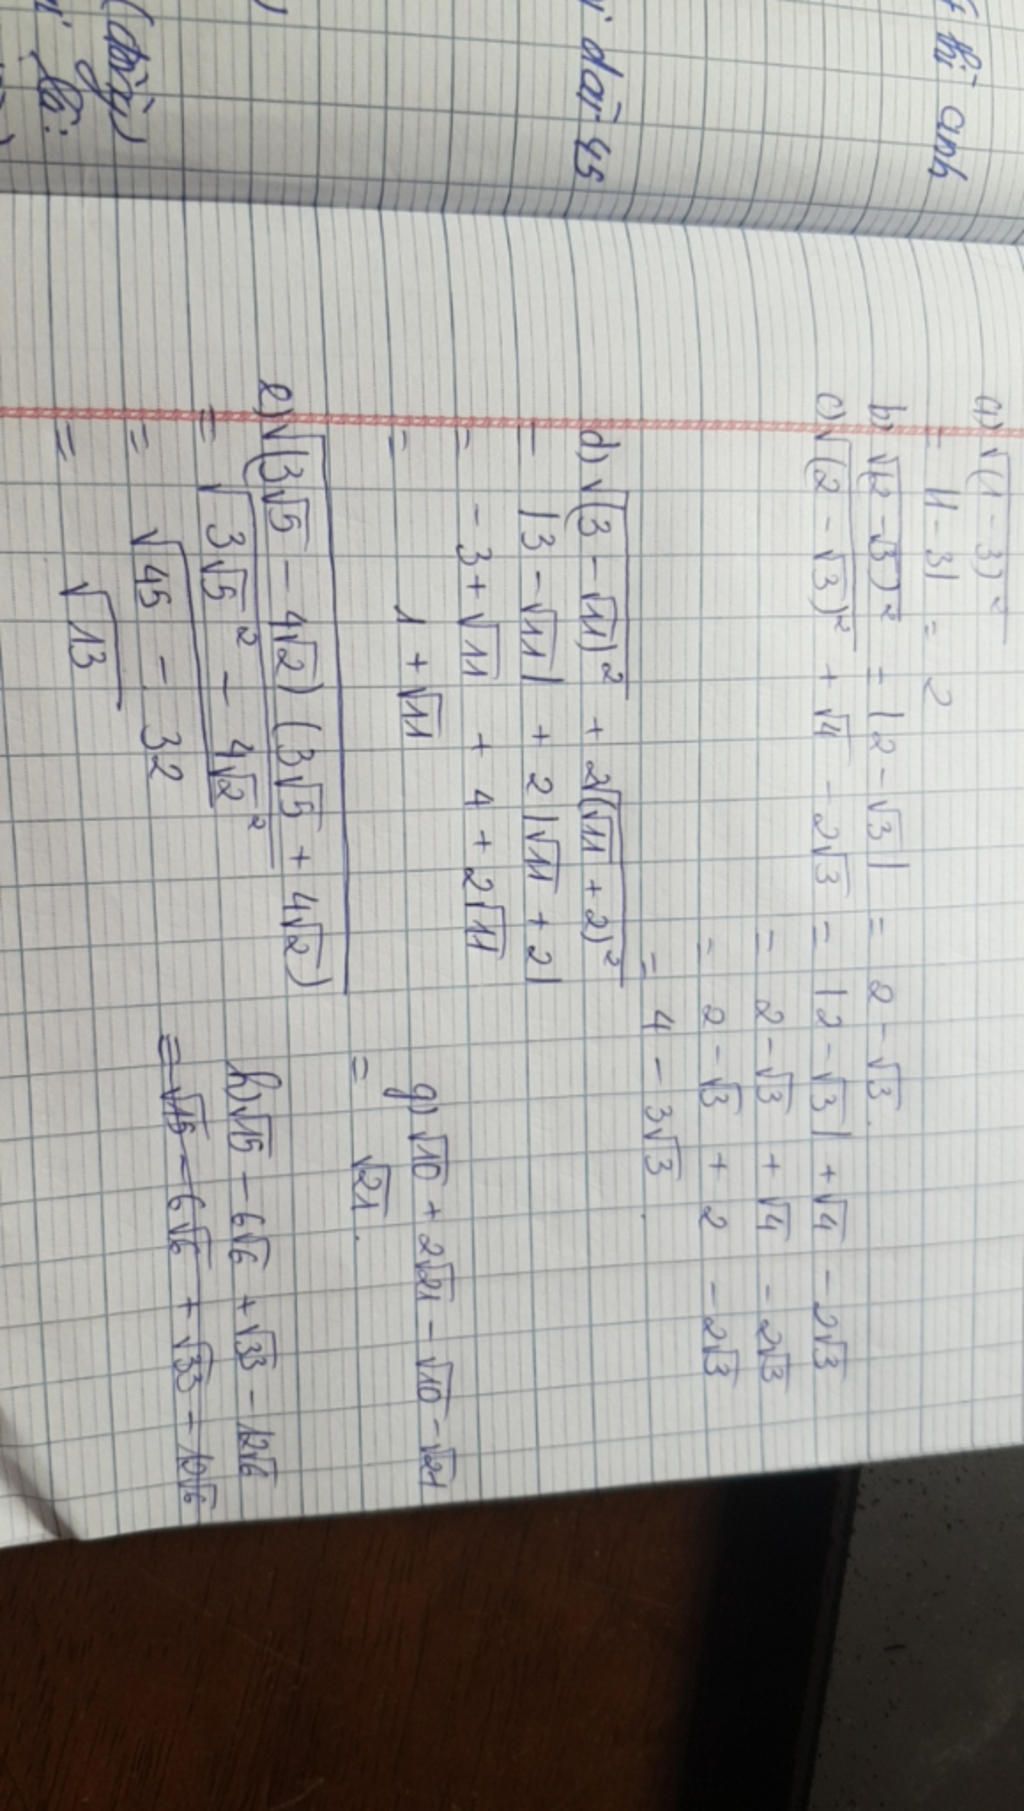 f thì anh
i dài 45
(đây)
lõ:
a) √(1-3)²
= |1-3| = 2
b) √(2-√3)² = |2-√3| = 2-√3.
c) √(2-√3)² + √4 - 2√3 = |2-√3| + √4 - 2√3
= 2-√3 + √4 - 2√3
= 2-√3 + 2 - 2√3
= 4 - 3√3.
d) √(3-√11)² + 2√(√11+2)²
= |3-√11| + 2|√11+2|
= -3+√11 + 4 + 2√11
= 1 + √11
e) √(3√5 - 4√2)(3√5 + 4√2)
= √3√5² - 4√2²
= √45 - 32
= √13
g) √10 + 2√21 - √10 - √21
= √21.
h) √15 - 6√6 + √33 - 12√6
= √15 - 6√6 + √33 - 12√6